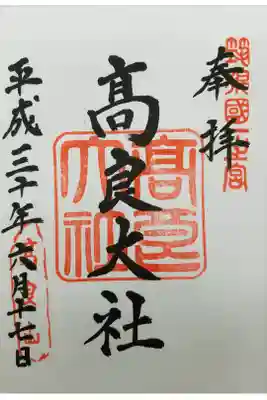 奉拝
筑後國一之宮
髙良大社
平成三十年六月十七日